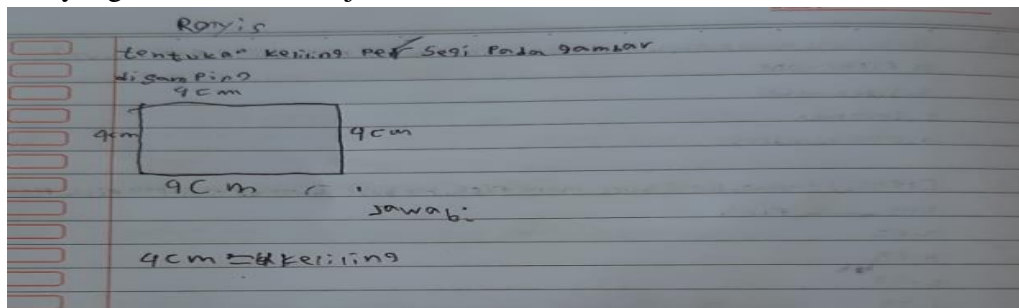 Ronyis
tentukan keliling per segi Pada gambar
disamping
9cm
9cm
9cm
9cm
Jawab:
9cm = keliling